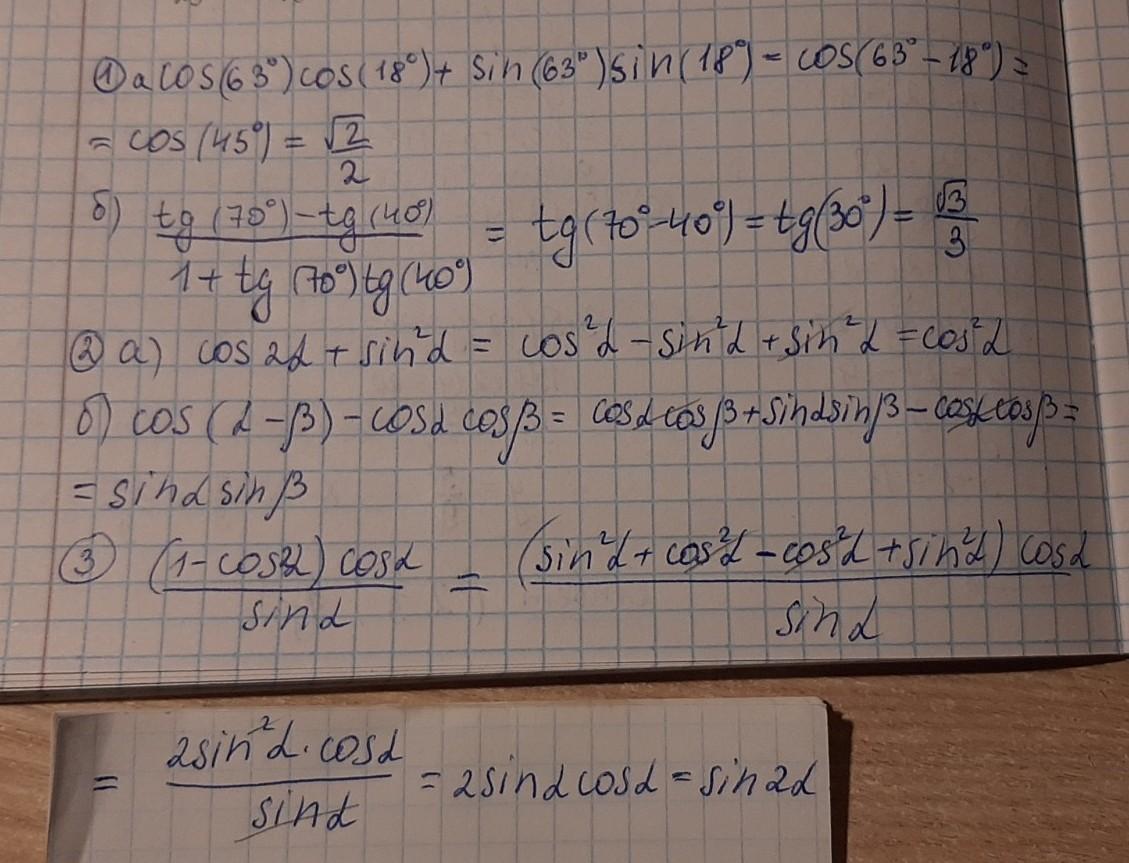 ① а cos(63°)cos(18°) + sin(63°)sin(18°) = cos(63° - 18°) =
= cos(45°) = √2/2
б) (tg(70°) - tg(40°))/(1 + tg(70°)tg(40°)) = tg(70° - 40°) = tg(30°) = √3/3
② а) cos 2α + sin²α = cos²α - sin²α + sin²α = cos²α
б) cos(α - β) - cosα cosβ = cosα cosβ + sinα sinβ - cosα cosβ =
= sinα sinβ
③ ((1 - cos2α) cosα)/sinα = ((sin²α + cos²α - cos²α + sin²α) cosα)/sinα
= (2sin²α · cosα)/sinα = 2sinα cosα = sin2α